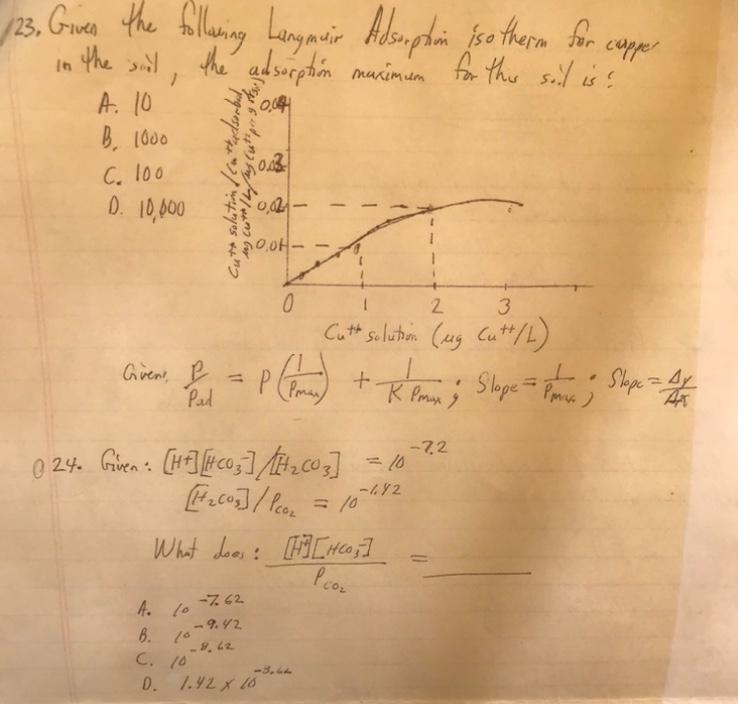 23. Given the following Langmuir Adsorption isotherm for copper
in the soil, the adsorption maximum for this soil is:
A. 10
B. 1000
C. 100
D. 10,000
Cu++ solution / Cu++ adsorbed
0.04
0.03
0.02
0.01
0 1 2 3
Cu++ solution (ug Cu++/L)
Given, P/Pad = P(1/Pmax) + 1/K Pmax; Slope = 1/Pmax; Slope = Δy/Δx
24. Given: [H+][HCO3-]/[H2CO3] = 10^-7.2
[H2CO3]/PCO2 = 10^-1.42
What does: [H+][HCO3-]/PCO2 = ______
A. 10^-7.62
B. 10^-9.42
C. 10^-8.62
D. 1.42 x 10^-8.62